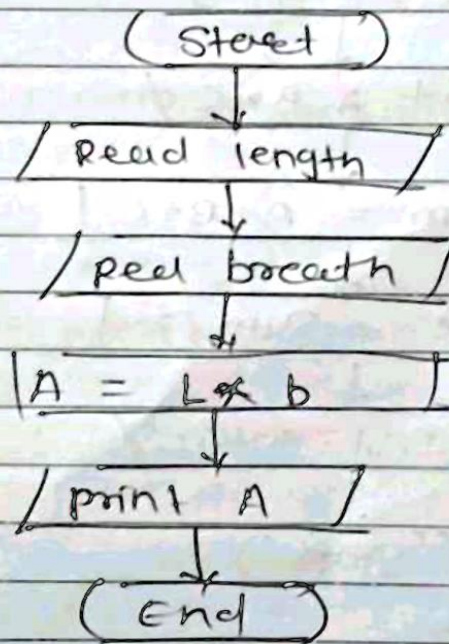 Start
Read length
Read breath
A = L * b
print A
End